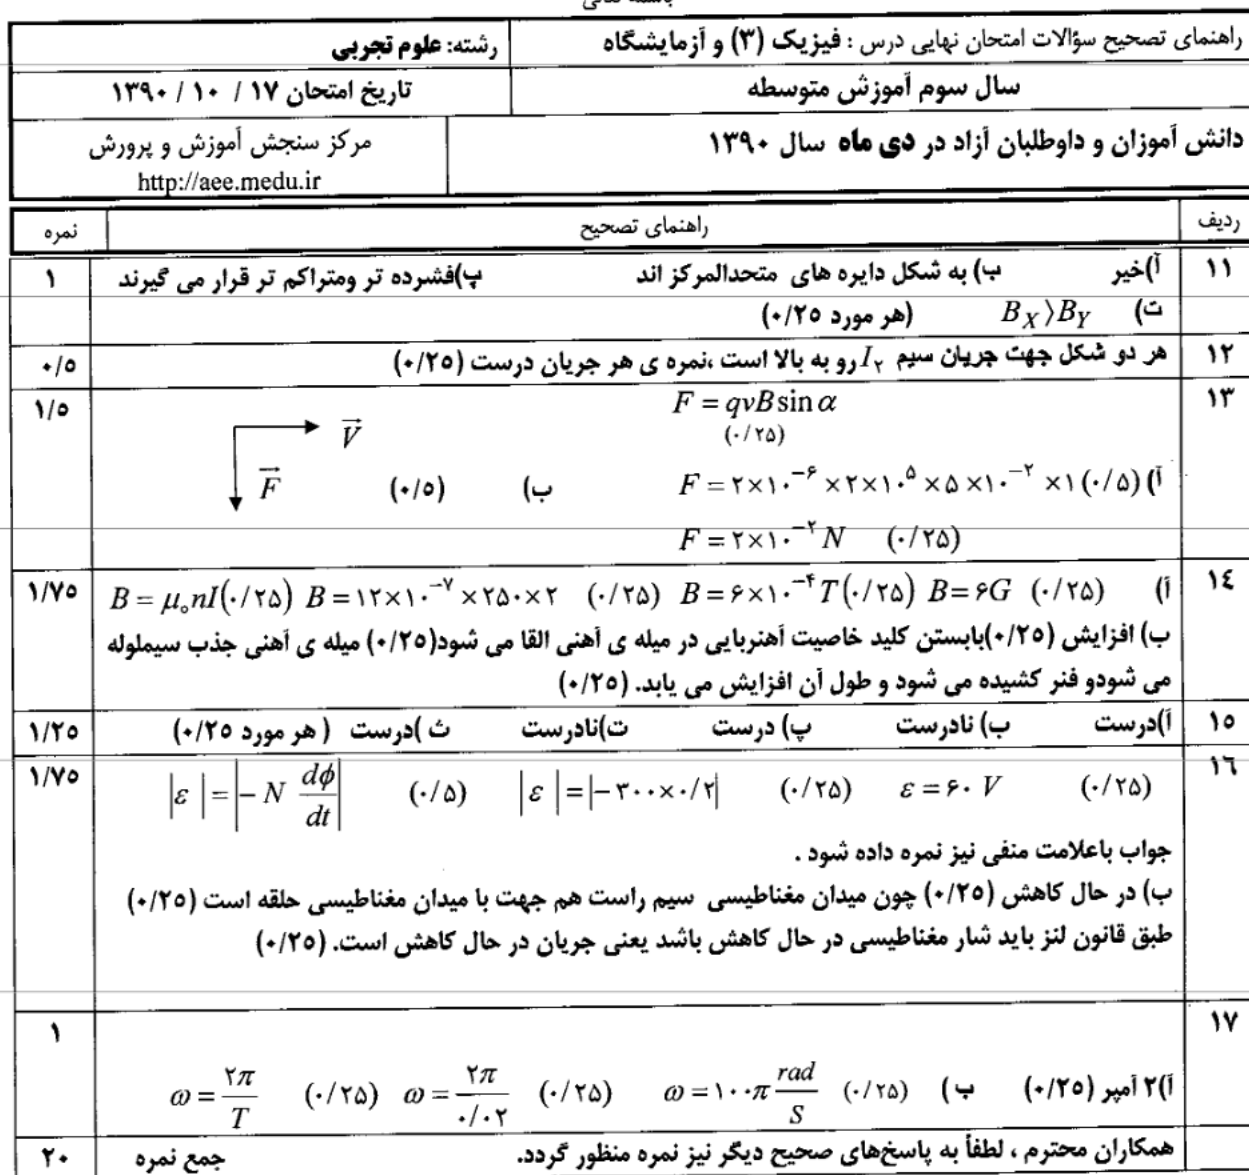 باسمه تعالی
راهنمای تصحیح سؤالات امتحان نهایی درس : فیزیک (۳) و آزمایشگاه
رشته: علوم تجربی
سال سوم آموزش متوسطه
تاریخ امتحان ۱۷ / ۱۰ / ۱۳۹۰
دانش آموزان و داوطلبان آزاد در دی ماه سال ۱۳۹۰
مرکز سنجش آموزش و پرورش
http://aee.medu.ir
ردیف راهنمای تصحیح نمره
۱۱ آ)خیر ب) به شکل دایره های متحدالمرکز اند پ)فشرده تر ومتراکم تر قرار می گیرند ۱
ت) B_X⟩B_Y (هر مورد ۰/۲۵)
۱۲ هر دو شکل جهت جریان سیم I_۲ رو به بالا است ،نمره ی هر جریان درست (۰/۲۵) ۰/۵
۱۳ F = qvB sin α ۱/۵
(۰/۲۵)
آ) F = ۲×۱۰^−۶ ×۲×۱۰^۵ ×۵×۱۰^−۲ ×۱ (۰/۵) ب) (۰/۵) V F
F = ۲×۱۰^−۲ N (۰/۲۵)
۱۴ آ) B = μ۰nI(۰/۲۵) B = ۱۲×۱۰^−۷ ×۲۵۰×۲ (۰/۲۵) B = ۶×۱۰^−۴ T(۰/۲۵) B = ۶G (۰/۲۵) ۱/۷۵
ب) افزایش (۰/۲۵)بابستن کلید خاصیت آهنربایی در میله ی آهنی القا می شود(۰/۲۵) میله ی آهنی جذب سیملوله
می شودو فنر کشیده می شود و طول آن افزایش می یابد. (۰/۲۵)
۱۵ آ)درست ب) نادرست پ) درست ت)نادرست ث )درست ( هر مورد ۰/۲۵) ۱/۲۵
۱۶ |ε| = |−N dϕ/dt| (۰/۵) |ε| = |−۳۰۰×۰/۲| (۰/۲۵) ε = ۶۰ V (۰/۲۵) ۱/۷۵
جواب باعلامت منفی نیز نمره داده شود .
ب) در حال کاهش (۰/۲۵) چون میدان مغناطیسی سیم راست هم جهت با میدان مغناطیسی حلقه است (۰/۲۵)
طبق قانون لنز باید شار مغناطیسی در حال کاهش باشد یعنی جریان در حال کاهش است. (۰/۲۵)
۱۷ ۱
آ)۲ آمپر (۰/۲۵) ب ) ω = ۲π/T (۰/۲۵) ω = ۲π/۰/۰۲ (۰/۲۵) ω = ۱۰۰π rad/S (۰/۲۵)
همکاران محترم ، لطفاً به پاسخ‌های صحیح دیگر نیز نمره منظور گردد. جمع نمره ۲۰